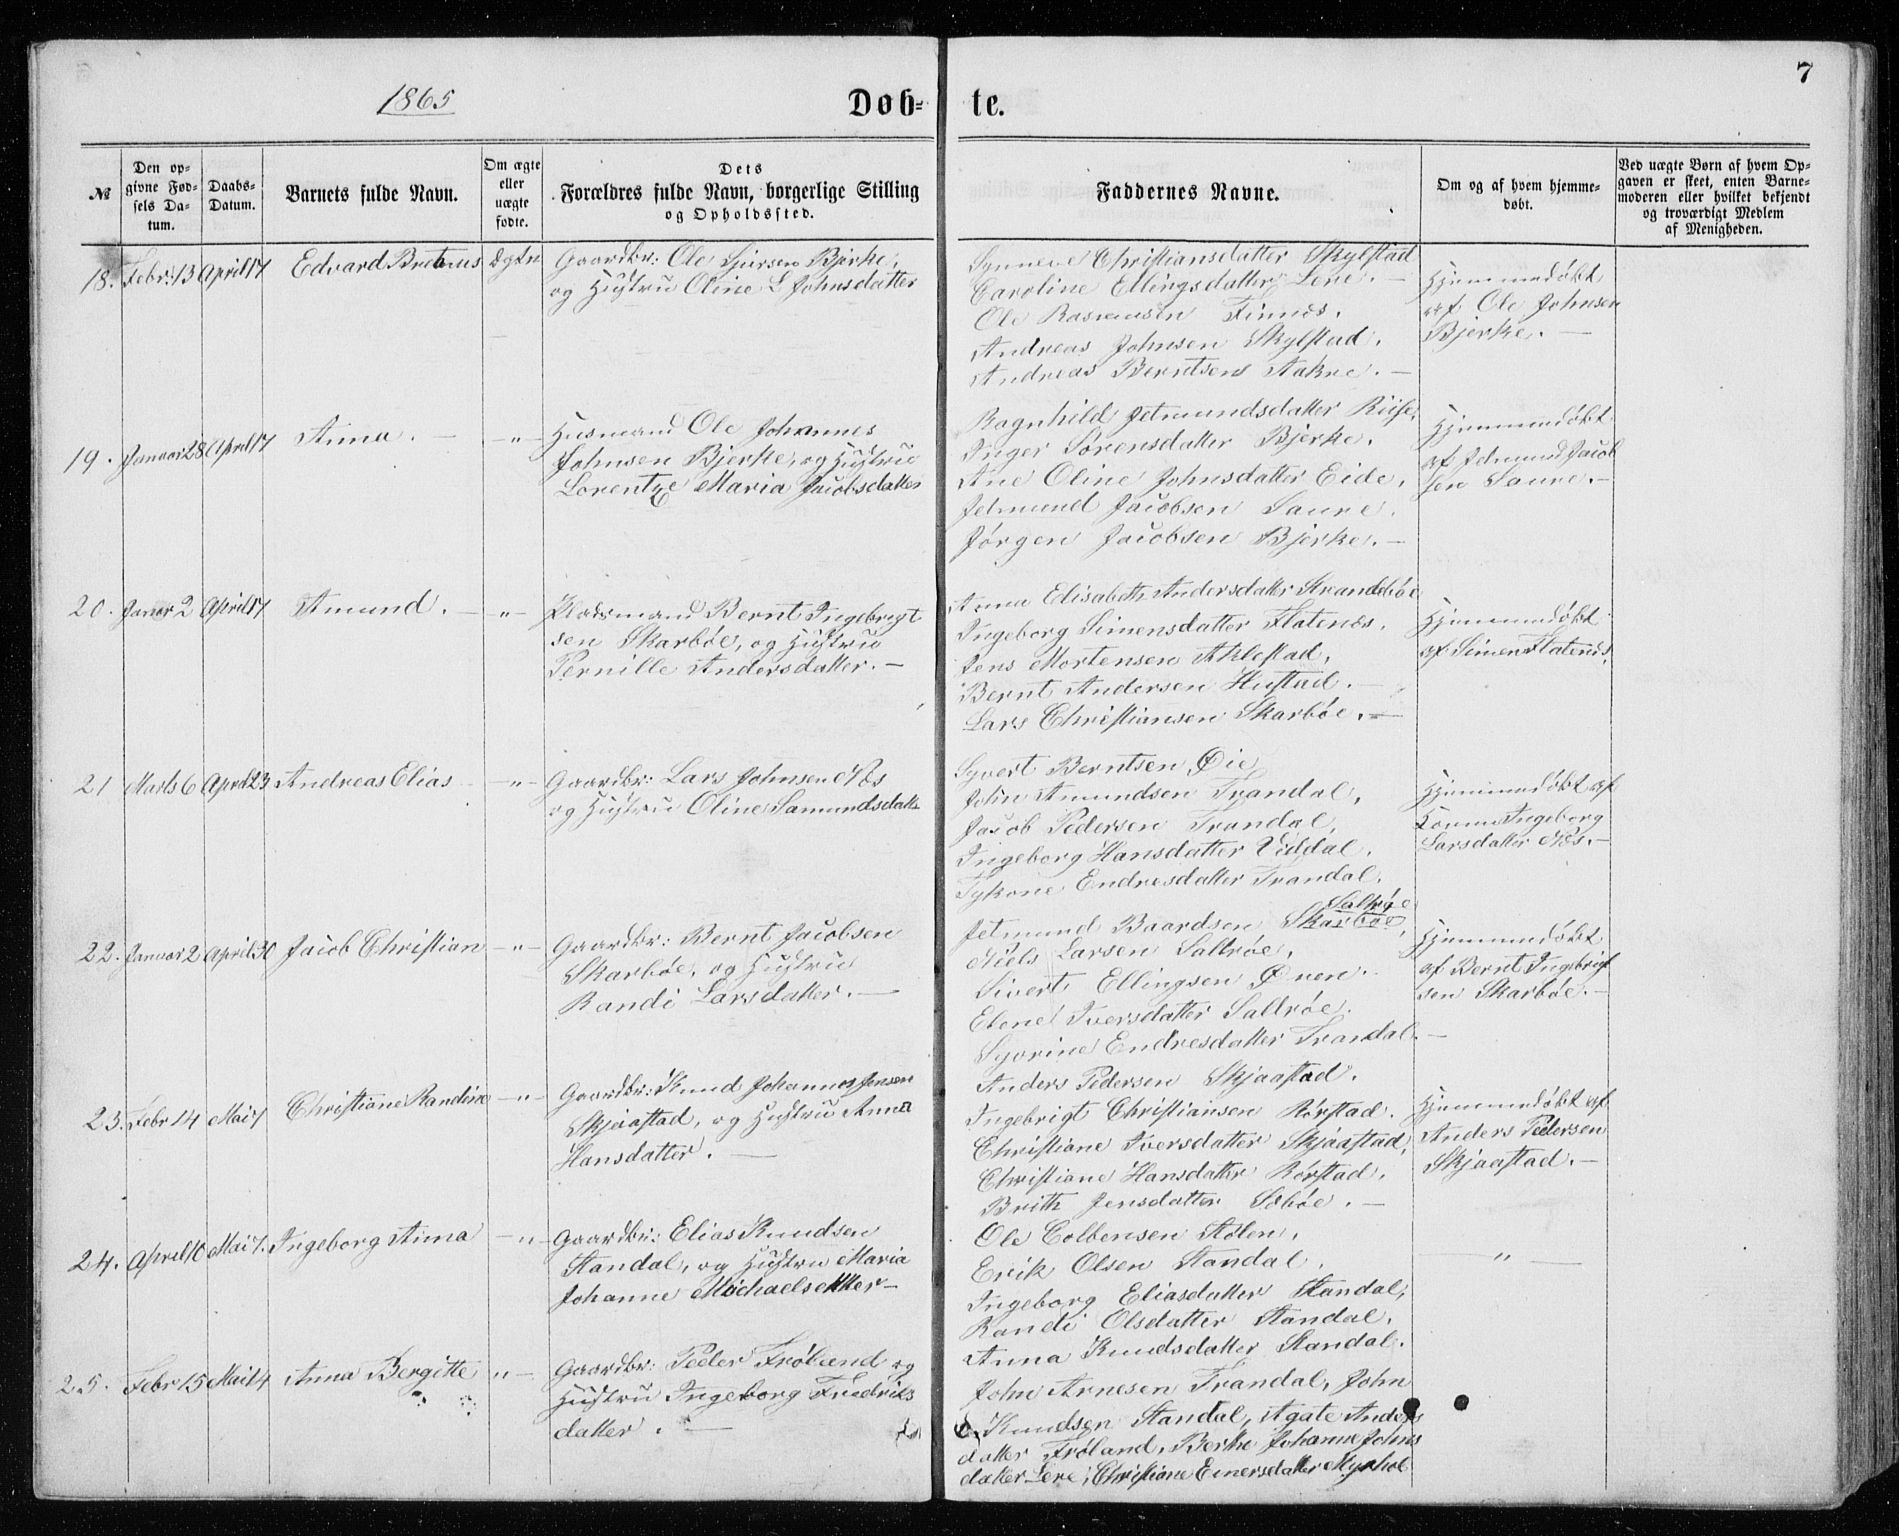 7
1865
Døb-
te.
№
Den op-
givne Fød-
sels Da-
tum.
Daabs-
Datum.
Barnets fulde Navn.
Om ægte
eller
uægte
fødte.
Dets
Forældres fulde Navn, borgerlige Stilling
og Opholdssted.
Faddernes Navne.
Om og af hvem hjemme-
døbt.
Ved uægte Børn af hvem Op-
gaven er skeet, enten Barne-
moderen eller hvilket bekjendt
og troværdigt Medlem
af Menigheden.
18. Febr: 13 April 17 Edvard
Gaardbr: Ole Bjerke,
og Hustru Oline L Johnsdatter
Synneve Christiansdatter Skylstad
Caroline Ellingsdatter Lere. —
Ole Rasmussen Finnes.
Andreas Johnsen Skylstad.
Andreas Berntsen Aakre. —
Hjemmedøbt
af Ole Johnsen
Bjerke. —
19. Januar 28 April 17 Anna. — —"—
Husmand Ole Johannes
Johnsen Bjerke, og Hustru
Lorentze Maria Jacobsdatter
Ragnhild Jetmundsdatter Riise,
Inger Sørensdatter Bjerke,
Ane Oline Johnsdatter Eide,
Jetmund Jacobsen Saure,
Jørgen Jacobsen Bjerke. —
Hjemmedøbt
af Jetmund Jacob
sen Saure. —
20. Januar 2 April 17 Amund. — —"—
Pladsmand Bernt Ingebrigt
sen Skarbøe, og Hustru
Pernille Andersdatter. —
Anna Elisabeth Andersdatter Strandebøe
Ingeborg Simensdatter Flatenes,
Jens Mortensen Aklestad,
Bernt Andersen Hustad. —
Lars Christiansen Skarbøe. —
Hjemmedøbt
af Simen Flatenes.
21 Marts 6 April 23 Andreas Elias —"—
Gaardbr: Lars Johnsen Næs
og Hustru Oline Samundsdatter
Syvert Berntsen Øie,
John Amundsen Trandal,
Jacob Pedersen Trandal,
Ingeborg Hansdatter Viddal,
Endresdatter Trandal,
Hjemmedøbt af
Ingeborg
Larsdatter Næs. —
22. Januar 2 April 30 Jacob Christian —"—
Gaardbr: Bernt Jacobsen
Skarbøe, og Hustru
Randi Larsdatter. —
Jetmund Baardsen Skarbøe,
Niels Larsen Saltrøe,
Sivert Ellingsen
Elene Iversdatter Saltrøe.
Syvrine Endresdatter Trandal. —
Hjemmedøbt
af Bernt Ingebrigt
sen Skarbøe. —
23. Febr 14 Mai 7 Christiane Randine —"—
Gaardbr: Knud Johannes Jensen
Skjaastad, og Hustru Anna
Hansdatter. —
Anders Pedersen Skjaastad.
Ingebrigt Christiansen Rørstad.
Christiane Iversdatter Skjaastad,
Christiane Hansdatter Rørstad,
Brith Jensdatter Sæbøe. —
Hjemmedøbt af
Anders Pedersen
Skjaastad. —
24. April 10 Mai 7. Ingeborg Anna —"—
Gaardbr: Elias Knudsen
Standal, og Hustru Maria
Johanne Michaelsdatter —
Ole Colbensen Stølen,
Erik Olsen Standal,
Ingeborg Eliasdatter Standal,
Randi Olsdatter Standal,
Anna Knudsdatter Standal.
— " —
25. Febr 15 Mai 14 Anna Bergitte "—
Gaardbr: Peder Frøland og
Hustru Ingeborg Fredriks
datter. —
John Arnesen Trandal, John
Knudsen Standal, Agate Anders
datter Frøland, Berthe Johanne Johns
datter Lere, Christiane Einersdatter